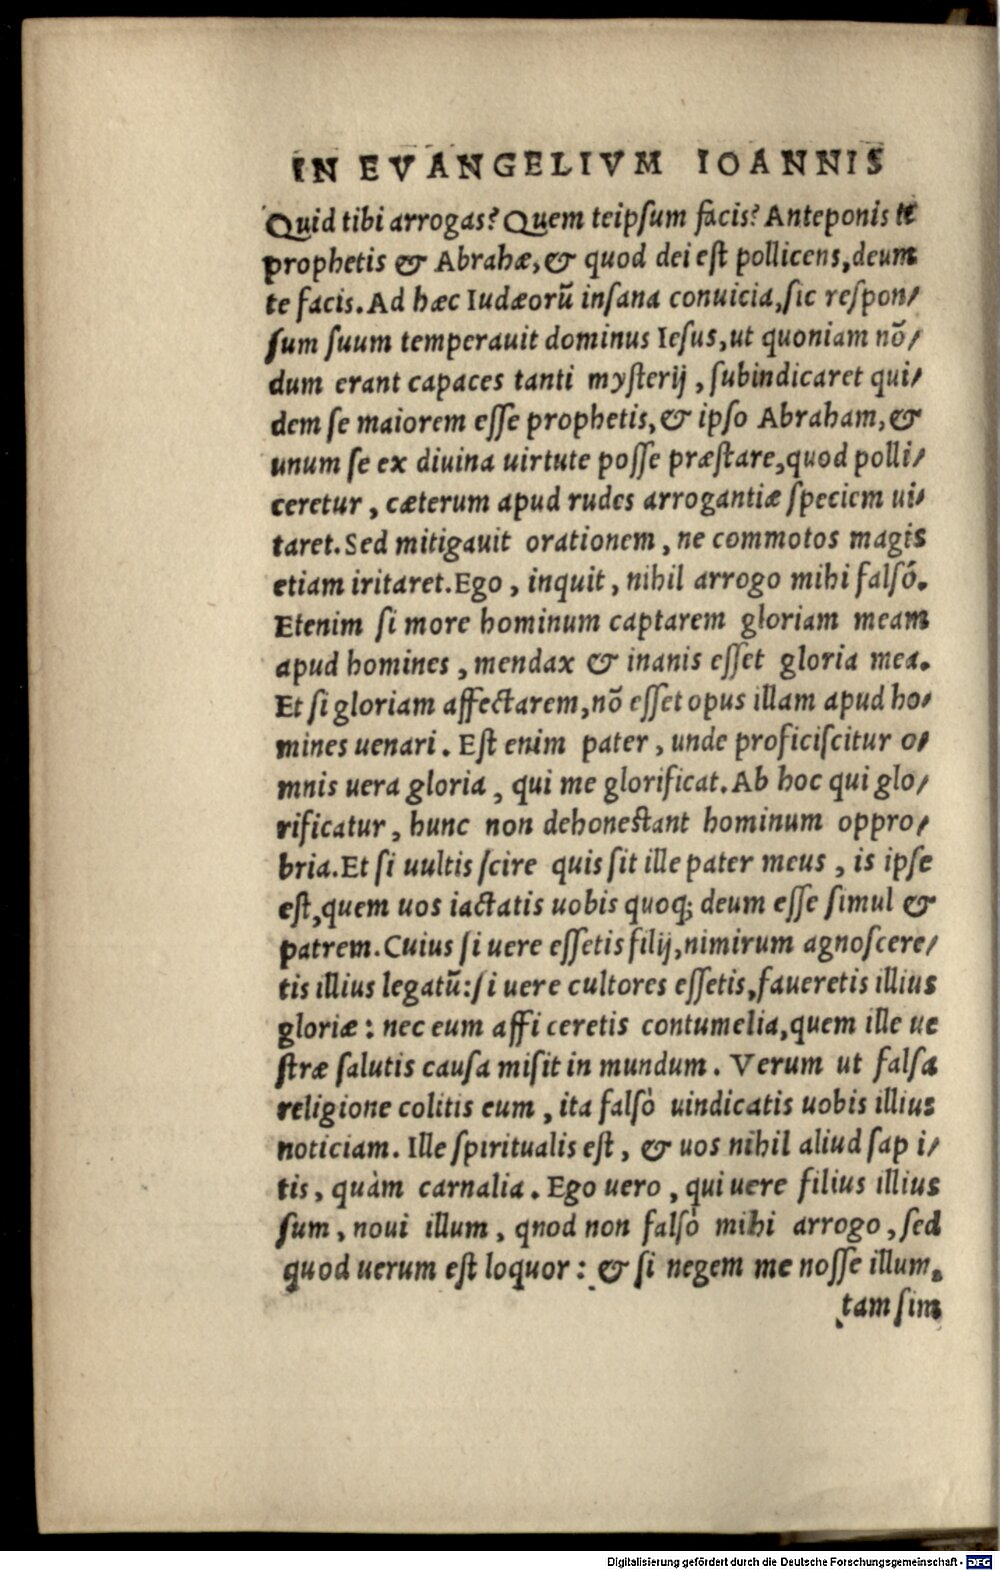 IN EVANGELIVM IOANNIS
Quid tibi arrogas? Quem teipſum facis? Anteponis te
prophetis & Abrahæ, & quod dei eſt pollicens, deum
te facis. Ad hæc Iudæorũ inſana conuicia, ſic reſpon/
ſum ſuum temperauit dominus Ieſus, ut quoniam nõ/
dum erant capaces tanti myſterij, ſubindicaret qui/
dem ſe maiorem eſſe prophetis, & ipſo Abraham, &
unum ſe ex diuina uirtute poſſe præſtare, quod polli/
ceretur, cæterum apud rudes arrogantiæ ſpeciem ui/
taret. Sed mitigauit orationem, ne commotos magis
etiam iritaret. Ego, inquit, nihil arrogo mihi falſó.
Etenim ſi more hominum captarem gloriam meam
apud homines, mendax & inanis eſſet gloria mea.
Et ſi gloriam affectarem, nõ eſſet opus illam apud ho/
mines uenari. Eſt enim pater, unde proficiſcitur o/
mnis uera gloria, qui me glorificat. Ab hoc qui glo/
rificatur, hunc non dehoneſtant hominum oppro/
bria. Et ſi uultis ſcire quis ſit ille pater meus, is ipſe
eſt, quem uos iactatis uobis quoq; deum eſſe ſimul &
patrem. Cuius ſi uere eſſetis filij, nimirum agnoſcere/
tis illius legatũ: ſi uere cultores eſſetis, faueretis illius
gloriæ: nec eum affi ceretis contumelia, quem ille ue
ſtræ ſalutis cauſa miſit in mundum. Verum ut falſa
religione colitis eum, ita falſò uindicatis uobis illius
noticiam. Ille ſpiritualis eſt, & uos nihil aliud ſap i/
tis, quàm carnalia. Ego uero, qui uere filius illius
ſum, noui illum, qnod non falſò mihi arrogo, ſed
quod uerum eſt loquor: & ſi negem me noſſe illum,
tam ſim
Digitalisierung gefördert durch die Deutsche Forschungsgemeinschaft - DFG